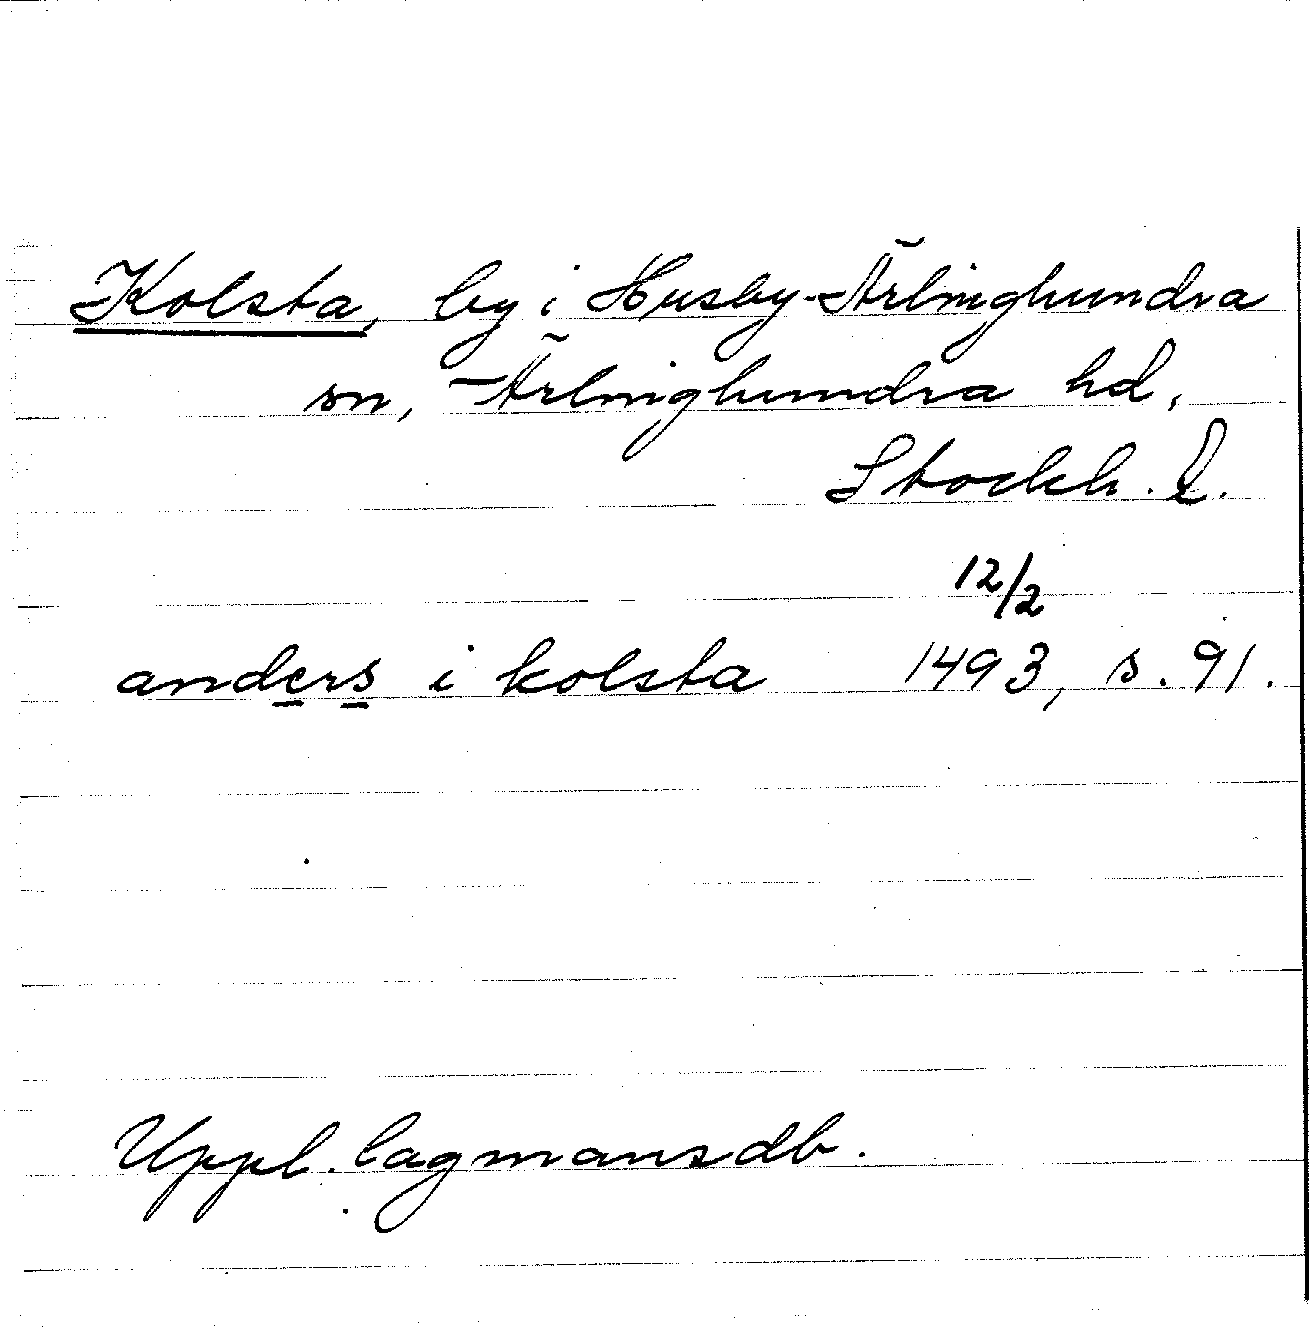 Kolsta, by i Husby-Ärlinghundra
sn, Ärlinghundra hd,
Stockh. l.
12/2
anders i kolsta 1493, s. 91.
Uppl. lagmansdb.